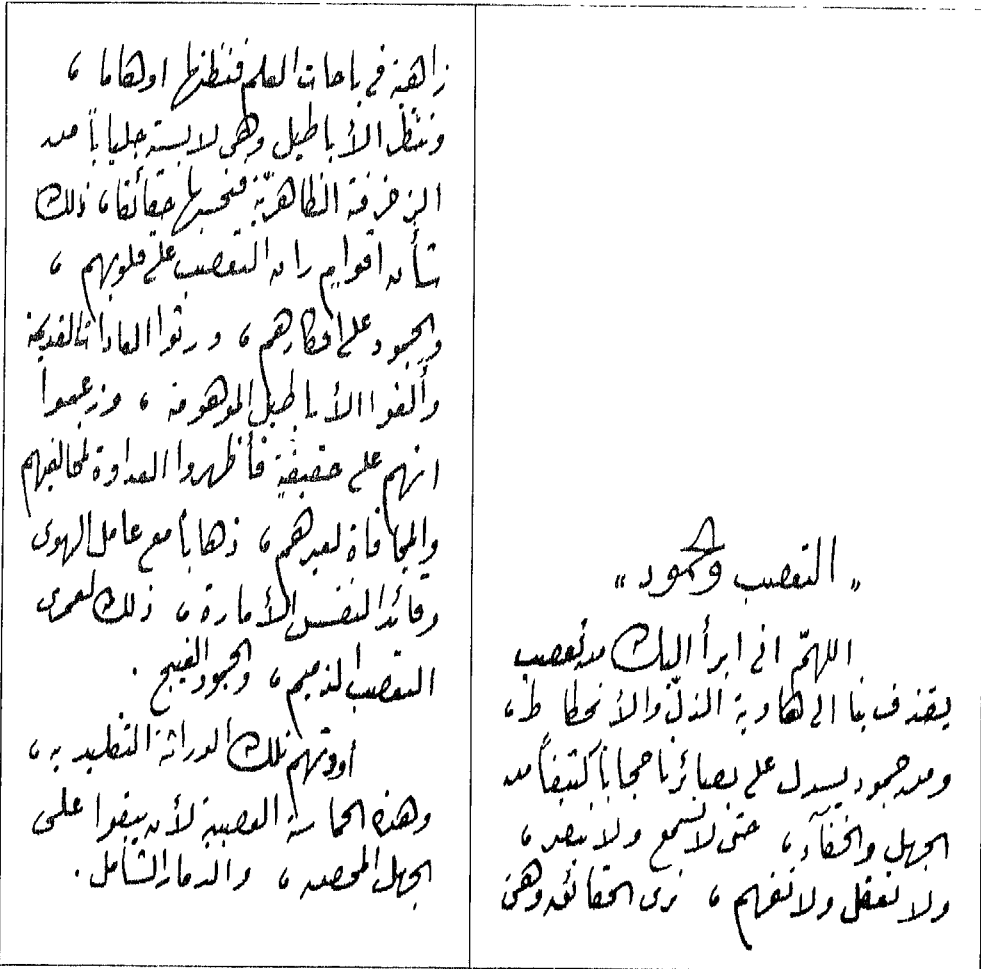 « التعصب والجمود »
اللهمّ اني ابرأ اليك من تعصب
يقذف بنا الى هاوية الذلّ والأنحطاط،
ومن جمود يسدل على بصائرنا حجاباً كثيفاً من
الجهل والخفآء، حتى لا نسمع ولا نبصر،
ولا نعقل ولا نفهم، نرى الحقائق وهي
زاهية في باحات العلم فنظنها اوهاما،
وننظر الأباطيل وهي لابسة جلباباً من
الزخرفة الظاهريّة فنحسبها حقائقا، ذلك
شأن اقوام ران التعصب على قلوبهم،
والجمود على افكارهم، ورثوا العادات القديمة
وألفوا الأباطيل الموهومة، وزعموا
انهم على حقيقةٍ فأظهروا العداوة لمخالفيهم
والمجافاة لغيرهم، ذهاباً مع عامل الهوى
وقائد النفس الأمارة، ذلك لعمري
التعصب الذميم، والجمود القبيح.
اودتهم تلك الوراثة التقليديه،
وهذه الحماسة العصبية لأن يبقوا على
الجهل المحض، والدمار الشامل.